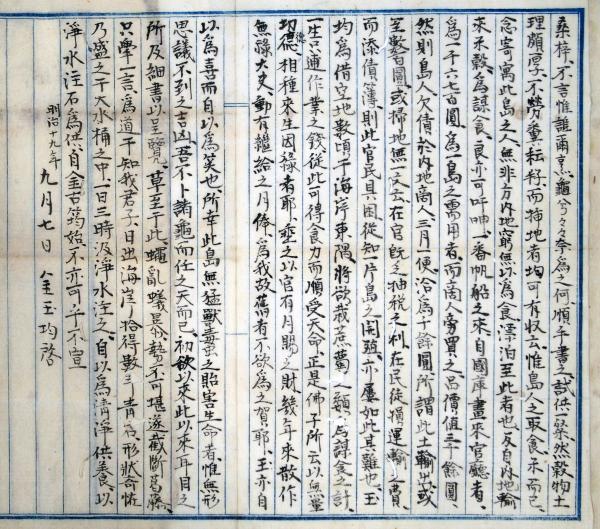 桑梓、不言惟誰爾烹龜兮々々奈爲之何順乎書之試供一粲然穀物土
理頗厚、不勞糞耘耔、而播地者均可有収云、惟島人之取食、未而已、
念寄寓此島之人、無非方內地窮無以爲食、漂泊至此者也、反自內地輸
來米穀、爲謀食、良亦可呻呻、一番帆船之來、自國庫畫來官廳者、
爲一千六七百圓、爲一島之需用者、而商人旁買之品價値三千餘圓、
然則島人欠債於內地商人、三月一便、洽爲千餘圓、所謂此土輸出、或
至數百圓、或掃地無一反去、在官旣之抽稅之利、在民徒損運輸之費、
而添債簿、則此官民具困、從知一片島之開殖、亦屢如此其難也、玉
均爲借空地數頃于海岸東隅、將欲栽蔗蔔之類、爲謀食之計、
一生只通作業之錢、從此可得食力而順受天命、正是佛子所云以無量
功德、相種來生因祿者耶、垂之以官有月賜之財、幾年來散作
無祿大吏、鄭有繼給之月俸、爲我故舊者不欲爲之賀耶、玉亦自
以爲喜而自以爲笑也、所幸此島無猛獸毒蟲之貽害生命者、惟無形
思議不到之吉凶、吾不卜諸龜而任之天而已、初欲以來此以來耳目之
所及細書以呈覽、草至于此、蠅亂蟻暴、勢不可堪、遂截斷葛藤、
只擧一言、爲道于知我君子、日出海岸、拾得數三靑石、形狀奇恠
乃盛之于大水桶之中、一日三時汲淨水注之、自以爲淸淨供養、以
淨水注石爲供、自金古筠始、不亦可乎、不宣
明治十九年 九月七日 金玉均啓